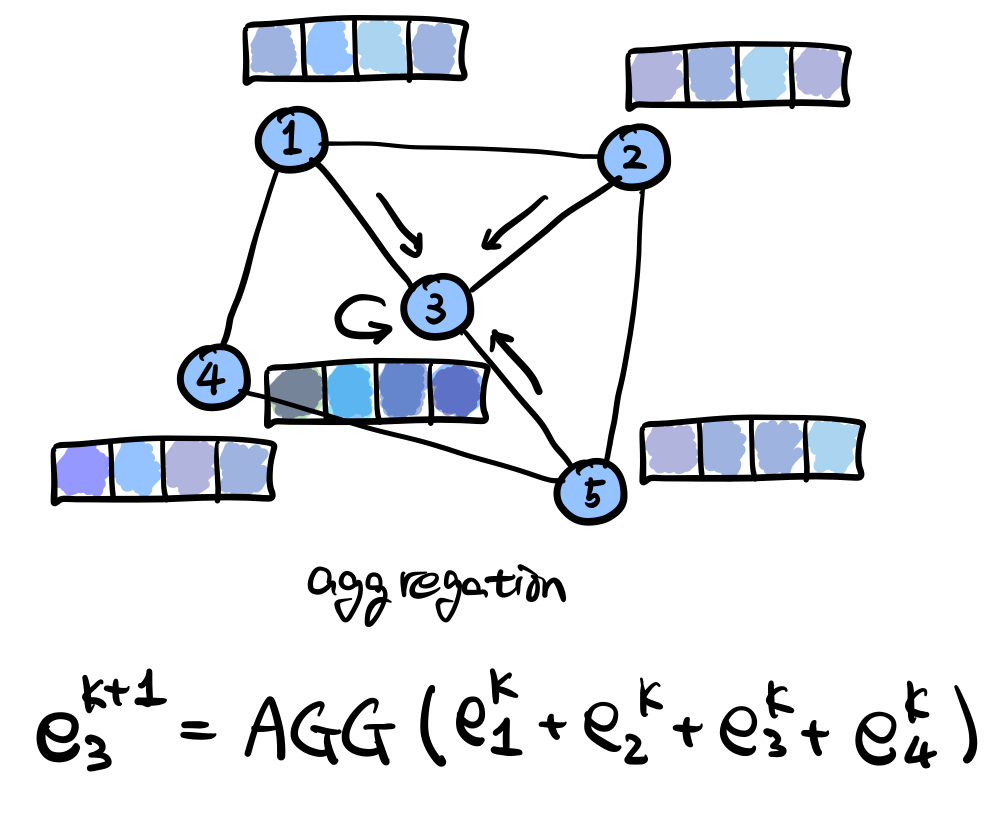 1
2
3
4
5
aggregation
e_3^{k+1} = AGG ( e_1^k + e_2^k + e_3^k + e_4^k )